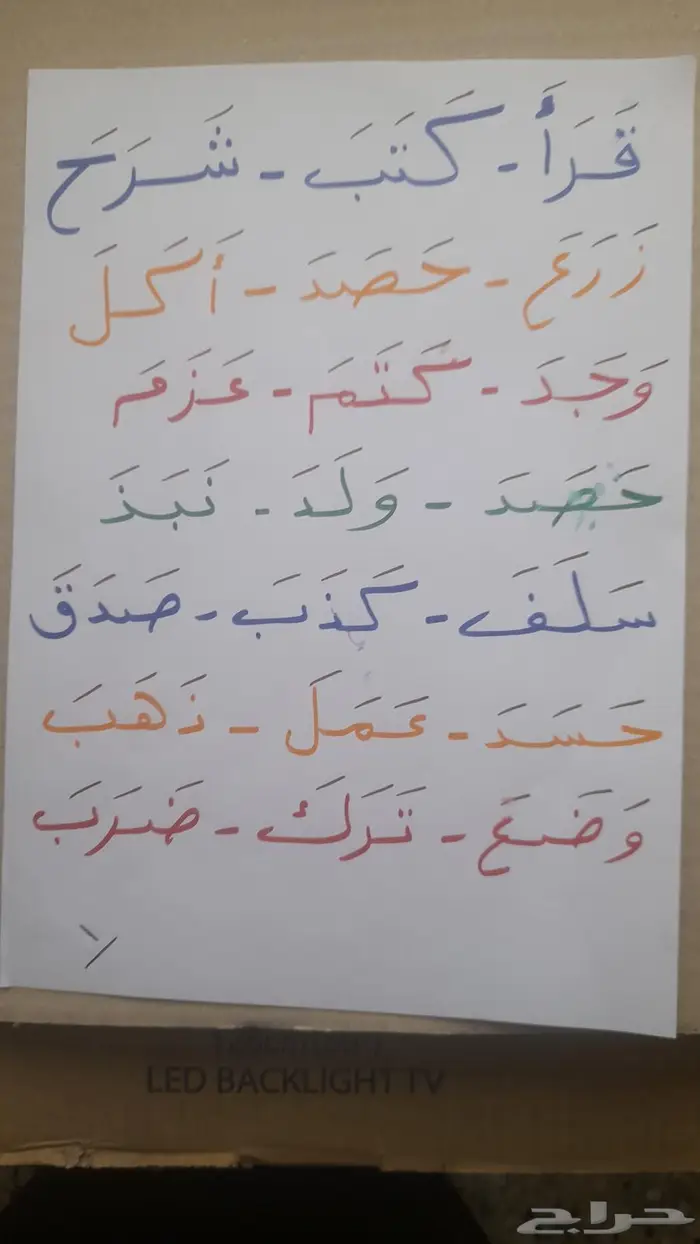 قَرَأَ - كَتَبَ - شَرَحَ
زَرَعَ - حَصَدَ - أَكَلَ
وَجَدَ - كَتَمَ - عَزَمَ
حَصَدَ - وَلَدَ - نَبَذَ
سَلَفَ - كَذَبَ - صَدَقَ
حَسَدَ - عَمَلَ - ذَهَبَ
وَضَعَ - تَرَكَ - ضَرَبَ
LED BACKLIGHT TV
حراج